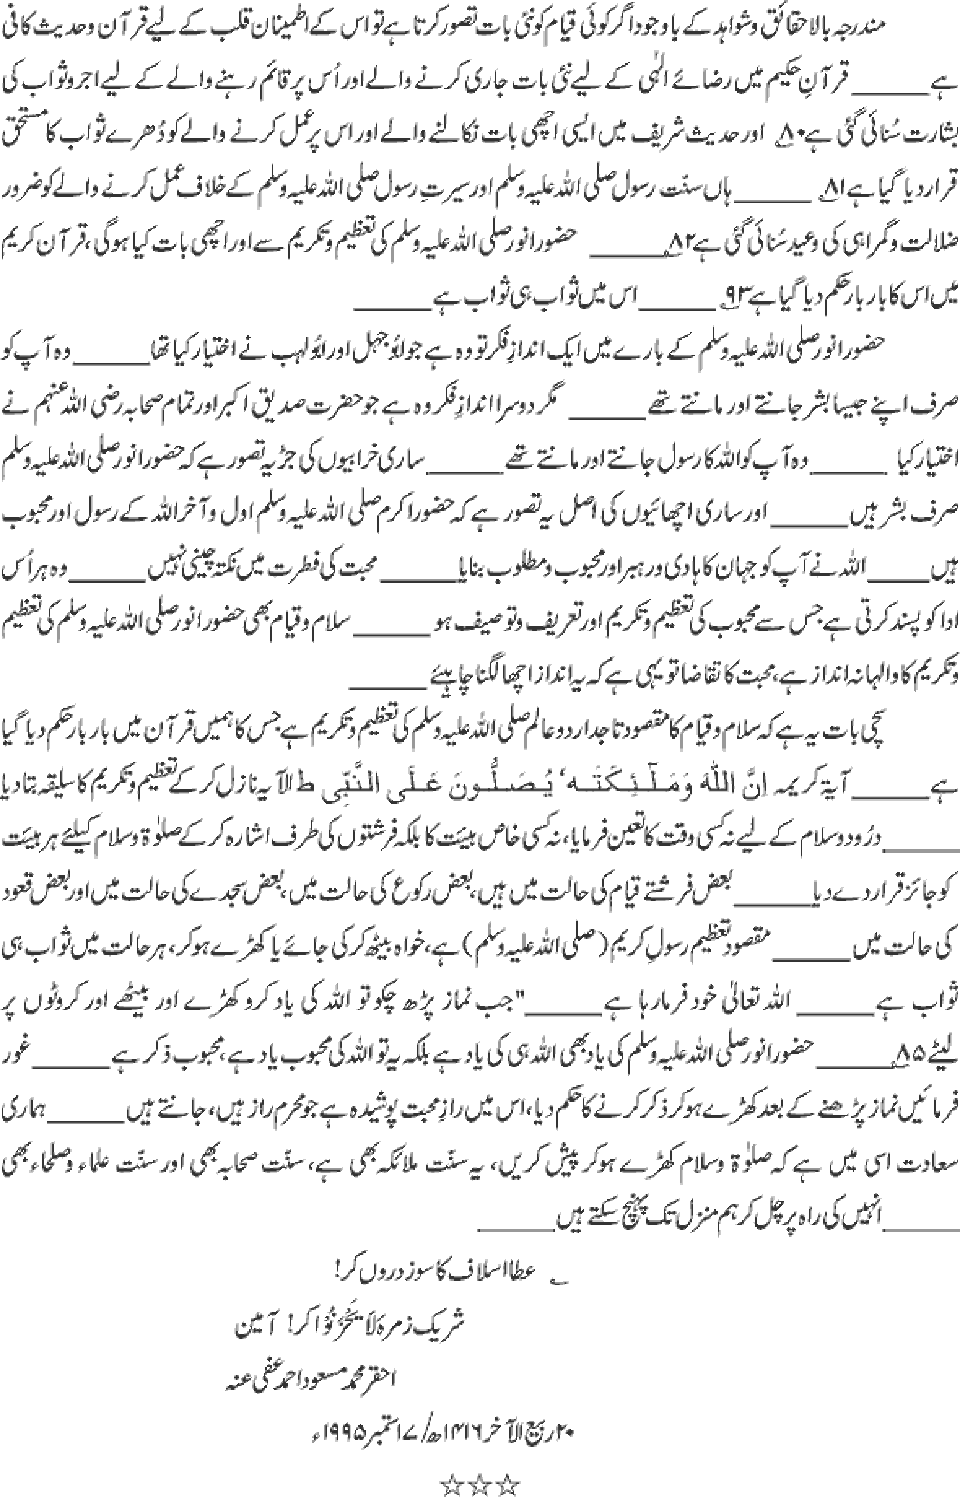 مندرجہ بالا حقائق و شواہد کے باوجود اگر کوئی قیام کو نئی بات تصور کرتا ہے تو اس کے اطمینان قلب کے لیے قرآن و حدیث کافی
ہے ______ قرآنِ حکیم میں رضائے الٰہی کے لیے نئی بات جاری کرنے والے اور اُس پر قائم رہنے والے کے لیے اجر و ثواب کی
بشارت سُنائی گئی ہے۸۰ اور حدیث شریف میں ایسی اچھی بات نکالنے والے اور اس پر عمل کرنے والے کو دُھرے ثواب کا مستحق
قرار دیا گیا ہے۸۱ ______ ہاں سنّت رسول صلی اللہ علیہ وسلم اور سیرتِ رسول صلی اللہ علیہ وسلم کے خلاف عمل کرنے والے کو ضرور
ضلالت و گمراہی کی وعید سُنائی گئی ہے۸۲ ______ حضور انور صلی اللہ علیہ وسلم کی تعظیم و تکریم سے اور اچھی بات کیا ہوگی، قرآن کریم
میں اس کا بار بار حکم دیا گیا ہے۹۳ ______ اس میں ثواب ہی ثواب ہے ______
حضور انور صلی اللہ علیہ وسلم کے بارے میں ایک اندازِ فکر تو وہ ہے جو ابُو جہل اور ابُو لہب نے اختیار کیا تھا ______ وہ آپ کو
صرف اپنے جیسا بشر جانتے اور مانتے تھے ______ مگر دوسرا اندازِ فکر وہ ہے جو حضرت صدیق اکبر اور تمام صحابہ رضی اللہ عنہم نے
اختیار کیا ______ وہ آپ کو اللہ کا رسول جانتے اور مانتے تھے ______ ساری خرابیوں کی جڑ یہ تصور ہے کہ حضور انور صلی اللہ علیہ وسلم
صرف بشر ہیں ______ اور ساری اچھائیوں کی اصل یہ تصور ہے کہ حضور اکرم صلی اللہ علیہ وسلم اول و آخر اللہ کے رسول اور محبوب
ہیں ______ اللہ نے آپ کو جہان کا ہادی و رہبر اور محبوب و مطلوب بنایا ______ محبت کی فطرت میں نکتہ چینی نہیں ______ وہ ہر اُس
ادا کو پسند کرتی ہے جس سے محبوب کی تعظیم و تکریم اور تعریف و توصیف ہو ______ سلام و قیام بھی حضور انور صلی اللہ علیہ وسلم کی تعظیم
و تکریم کا والہانہ انداز ہے، محبت کا تقاضا تو یہی ہے کہ یہ انداز اچھا لگنا چاہئیے ______
سچّی بات یہ ہے کہ سلام و قیام کا مقصود تاجدارِ دو عالم صلی اللہ علیہ وسلم کی تعظیم و تکریم ہے جس کا ہمیں قرآن میں بار بار حکم دیا گیا
ہے ______ آیۃ کریمہ اِنَّ اللّٰهَ وَمَلٰٓئِكَتَه، یُصَلُّونَ عَلَی النَّبِّی ط الآیہ نازل کر کے تعظیم و تکریم کا سلیقہ بتا دیا
______ درُود و سلام کے لیے نہ کسی وقت کا تعین فرمایا، نہ کسی خاص ہیئت کا بلکہ فرشتوں کی طرف اشارہ کر کے صلوٰۃ و سلام کیلئے ہر ہیئت
کو جائز قرار دے دیا ______ بعض فرشتے قیام کی حالت میں ہیں، بعض رکوع کی حالت میں، بعض سجدے کی حالت میں اور بعض قعود
کی حالت میں ______ مقصود تعظیم رسولِ کریم (صلی اللہ علیہ وسلم) ہے، خواہ بیٹھ کر کی جائے یا کھڑے ہو کر، ہر حالت میں ثواب ہی
ثواب ہے ______ اللہ تعالیٰ خود فرما رہا ہے ______ "جب نماز پڑھ چکو تو اللہ کی یاد کرو کھڑے اور بیٹھے اور کروٹوں پر
لیٹے۸۵ ______ حضور انور صلی اللہ علیہ وسلم کی یاد بھی اللہ ہی کی یاد ہے بلکہ یہ تو اللہ کی محبوب یاد ہے، محبوب ذکر ہے ______ غور
فرمائیں نماز پڑھنے کے بعد کھڑے ہو کر ذکر کرنے کا حکم دیا، اس میں رازِ محبت پوشیدہ ہے جو محرم راز ہیں، جانتے ہیں ______ ہماری
سعادت اسی میں ہے کہ صلوٰۃ و سلام کھڑے ہو کر پیش کریں، یہ سنّت ملائکہ بھی ہے، سنّت صحابہ بھی اور سنّت علماء و صلحاء بھی
______ انہیں کی راہ پر چل کر ہم منزل تک پہنچ سکتے ہیں ______
؎ عطا اسلاف کا سوزِ دروں کر!
شریک زمرہ لَا یَحْزَنُوْا کر! آمین
احقر محمد مسعود احمد عفی عنہ
۲۰ ربیع الآخر ۱۴۱۶ھ/ ۱۷ ستمبر ۱۹۹۵ء
☆☆☆